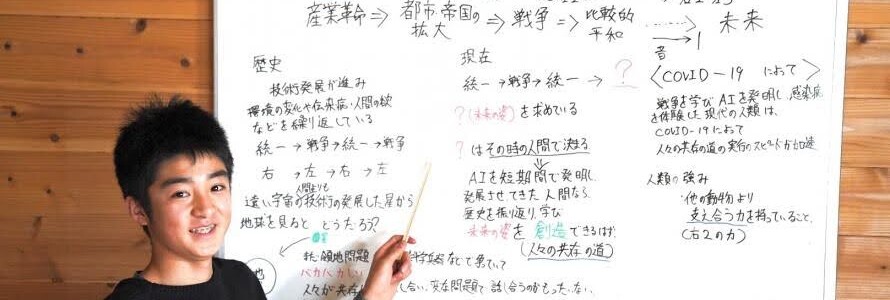 産業革命 ⇒ 都市・帝国の拡大 ⇒ 戦争 ⇒ 比較的平和 ⇒ 未来
歴史
技術発展が進み
環境の変化や伝染病・人間の欲
などを繰り返している
統一→戦争→統一→戦争
右→左→右→左
人間よりも
遠い宇宙の技術の発展した星から
地球を見ると どうだろう?
領地問題
バカバカしい
人々が共存
現在
統一→戦争→統一→?
?(未来の姿)を求めている
?はその時の人間で決まる
AIを短期間で発明し
発展させてきた人間なら、
歴史を振り返り、学び
未来の姿を創造できるはず
(人々の共存の道)
〈COVID-19 によって〉
戦争を学びAIを発明し、感染症
を体験した現代の人類は、
COVID-19によって
人々の共存の道の実行のスピードが加速
人類の強み
・他の動物より
支え合う力を持っていること。